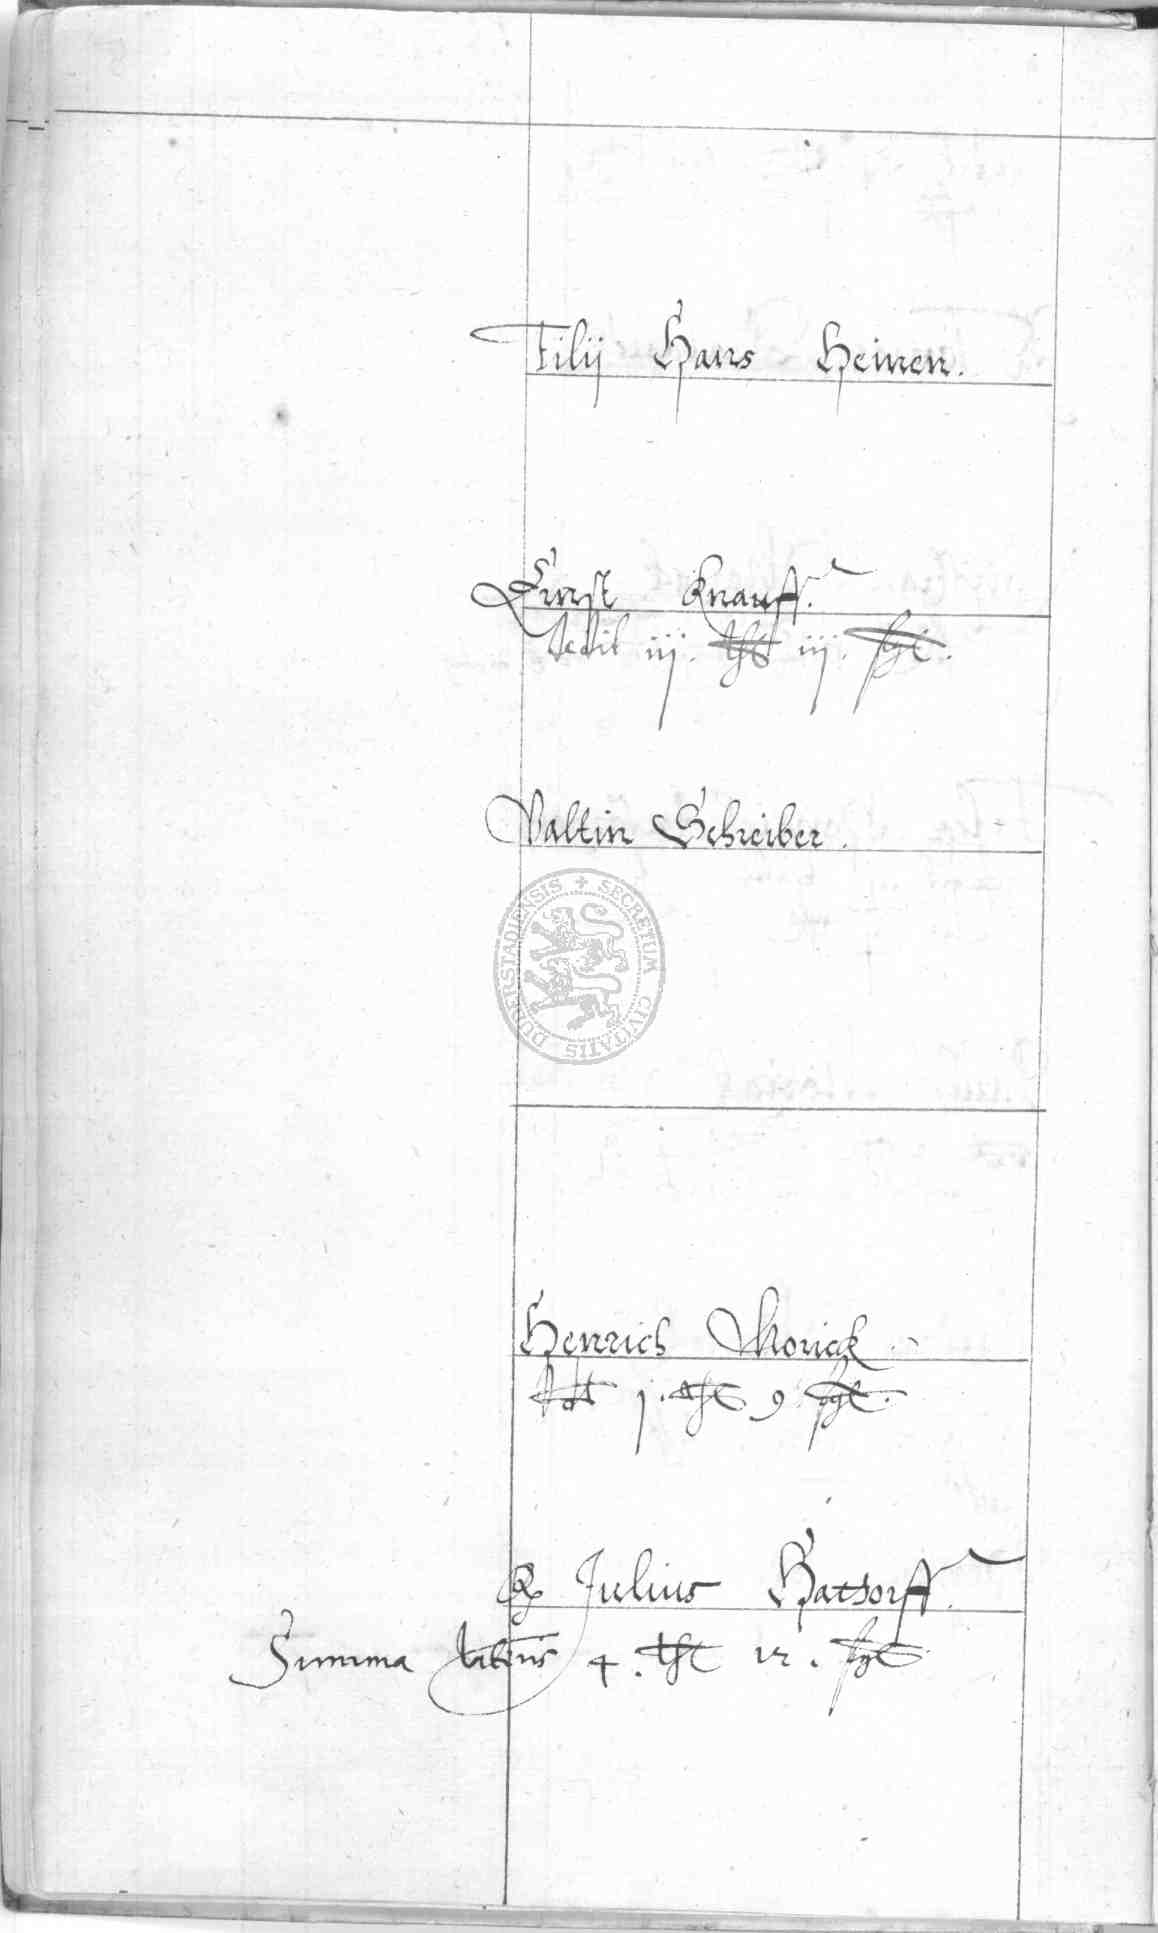 Filij Hans Heinen.
Ernst Knauff.
dedit iij. thl iij. ßgl.
Valtin Schreiber.
SECRETUM CIVITATIS DUDERSTADIENSIS
Henrich Morick.
dt j. thl. 9 ßgl.
Julius Hattorff.
Summa lateris 4. thl 12. ßgl